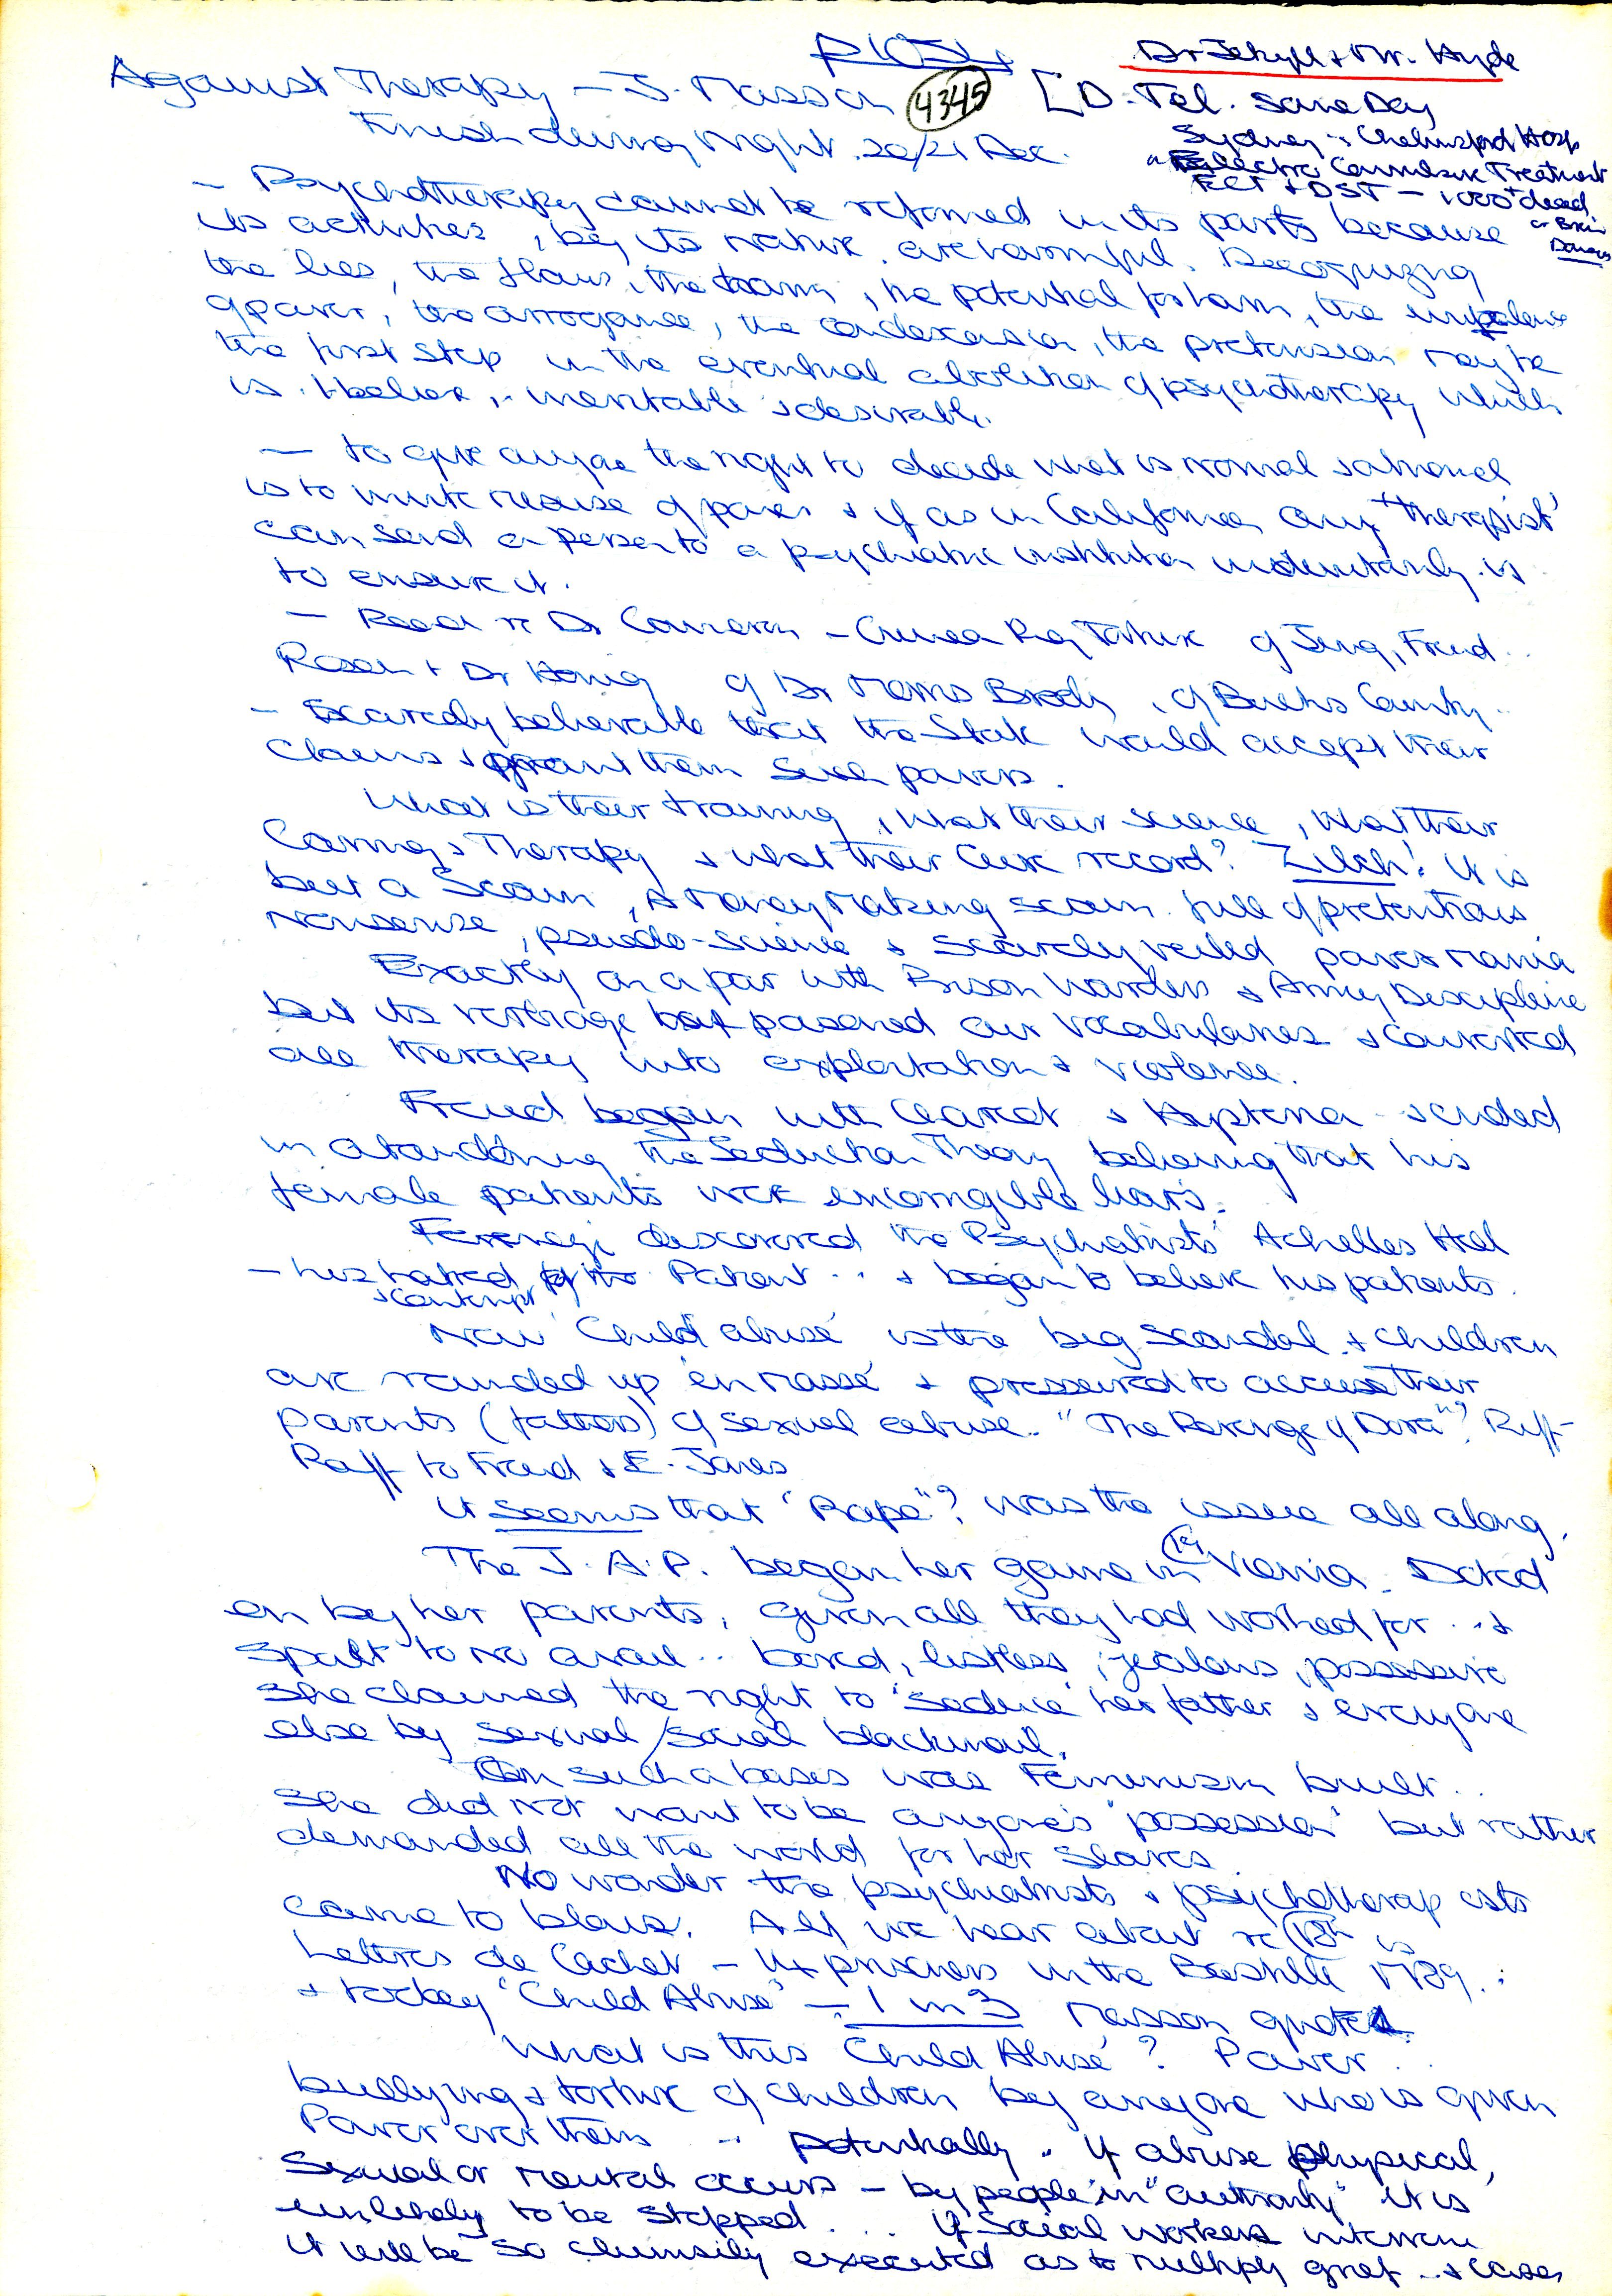 Dr Jekyll + Mr. Hyde
Against Therapy — J. Masson 4345 [D. Tel. same Day
Finish during Night 20/21 Dec.
Sydney : Chelmsford Hosp
Electro Convulsive Treatment
ECT + DST — 1000+ dead
or Brain
Damage
— Psychotherapy cannot be reformed in its parts because
its activities, by its nature, are harmful. Recognizing
the lies, the flaws, the harm, the potential for harm, the imbalance
of power, the arrogance, the condescension, the pretension may be
the first step in the eventual abolition of psychotherapy which
is, I believe, inevitable & desirable.
— to give anyone the right to decide what is normal & rational
is to invite misuse of power & if as in California any "therapist"
can send a person to a psychiatric institution involuntarily is
to ensure it.
— Read re Dr Cameron — of Jung, Freud ..
Rosen + Dr Honig of Dr Morris Brody, of Bucks County ..
— Scarcely believable that the State would accept their
claims & grant them such powers.
What is their training, what their science, what their
Caring & Therapy & what their Cure record? Zilch! It is
but a Scam, a Money Making scam full of pretentious
nonsense, pseudo-science & scarcely veiled power mania
Exactly on a par with Prison Warders & Army Discipline
but its verbiage has poisoned our vocabularies & converted
all therapy into exploitation & violence.
Freud began with Charcot & Hysteria & ended
in abandoning the Seduction Theory believing that his
female patients were incorrigible liars.
Ferenczi discovered the Psychiatrists' Achilles Heel
— his hatred & contempt of the Patient .. & began to believe his patients.
Now 'Child abuse' is the big scandal & children
are rounded up 'en masse' & pressured to accuse their
parents (fathers) of sexual abuse. "The Revenge of Dora"? Riff-
Raff to Freud & E. Jones
It seems that "Rape"? was the issue all along.
The J.A.P. began her game in 19 Vienna. Doted
on by her parents, given all they had worked for .. &
spoilt to no avail .. bored, listless, jealous, possessive
she claimed the right to 'seduce' her father & everyone
else by sexual/social blackmail.
On such a basis was Feminism built ..
She did not want to be anyone's "possession" but rather
demanded all the world for her slaves.
No wonder the psychiatrists & psychotherapists
came to blows. All we hear about re 18th is
Lettres de Cachet — prisoners in the Bastille 1789 ..
& today "Child Abuse" — 1 in 3 Masson quotes.
What is this 'Child Abuse'? Power ..
bullying & torture of children by anyone who is given
Power over them .. potentially. If abuse physical,
Sexual or mental occurs — by people in "authority" it is
unlikely to be stopped ... If Social workers intervene
it will be so clumsily executed as to multiply grief .. & cases